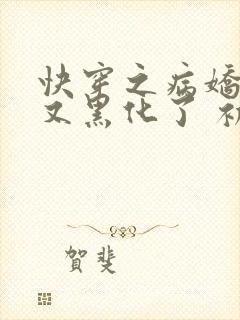 快穿之病嬌
又黑化了
賀斐